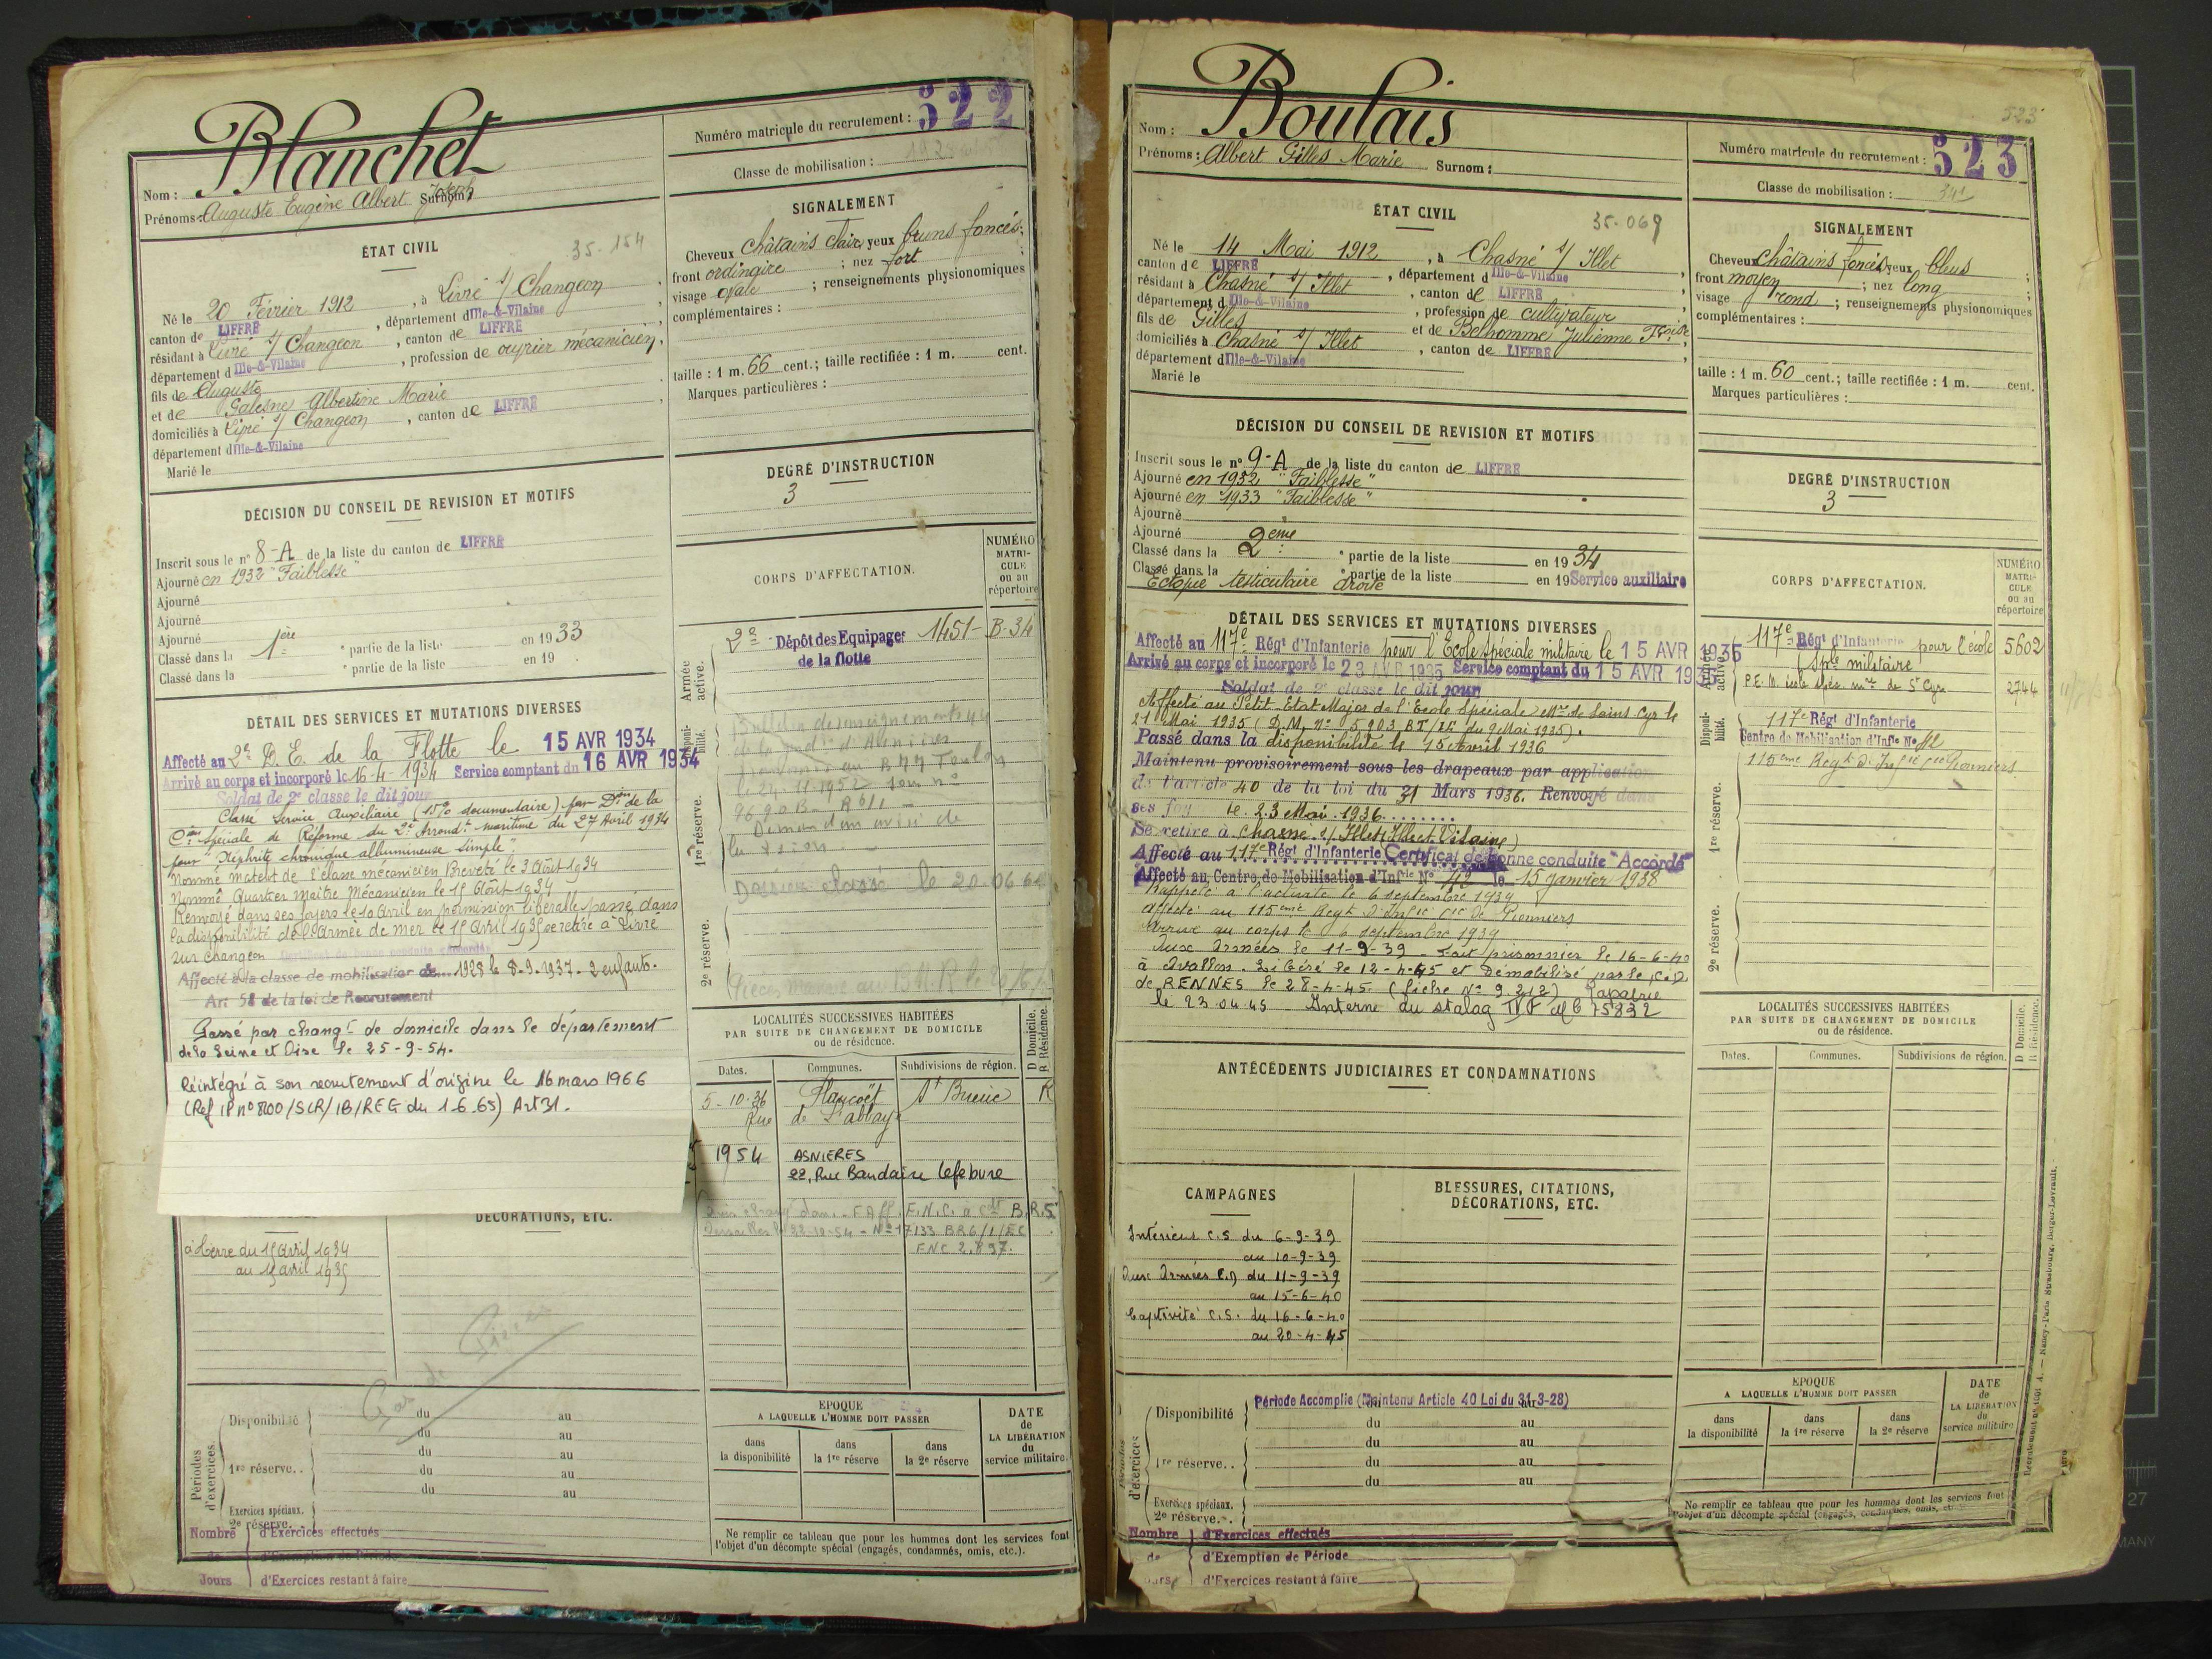 Blanchet
Nom :
Prénoms : Auguste Eugène Albert Joseph Surnom :
Numéro matricule du recrutement : 522
Classe de mobilisation :
ÉTAT CIVIL
35-154
Né le 20 Février 1912, à Livré s/ Changeon,
canton de LIFFRÉ, département d Ille-&-Vilaine,
résidant à Livré s/ Changeon, canton de LIFFRÉ,
département d Ille-&-Vilaine, profession de ouvrier mécanicien,
fils de Auguste
et de Galesne Albertine Marie
domiciliés à Livré s/ Changeon, canton de LIFFRÉ,
département d Ille-&-Vilaine
Marié le
SIGNALEMENT
Cheveux châtains clair, yeux bruns foncés;
front ordinaire ; nez fort
visage ovale ; renseignements physionomiques
complémentaires :
taille : 1 m. 66 cent.; taille rectifiée : 1 m. cent.
Marques particulières :
DÉCISION DU CONSEIL DE REVISION ET MOTIFS
Inscrit sous le n° 8-A de la liste du canton de LIFFRÉ
Ajourné en 1932 "Faiblesse"
Ajourné
Ajourné
Ajourné
Classé dans la 1ère partie de la liste en 1933
Classé dans la partie de la liste en 19
DEGRÉ D'INSTRUCTION
3
CORPS D'AFFECTATION.
NUMÉRO MATRICULE ou au répertoire
Armée active.
2e Dépôt des Equipages 1451-B-34
de la flotte
DÉTAIL DES SERVICES ET MUTATIONS DIVERSES
Affecté au 2e D. E. de la Flotte le 15 AVR 1934
Arrivé au corps et incorporé le 16-4-1934 Service comptant du 16 AVR 1934
Soldat de 2e classe le dit jour
Classé Service Auxiliaire (15% documentaire) par Don de la
Con Spéciale de Réforme du 2e Arrondt maritime du 27 Avril 1934
pour "Néphrite chronique albumineuse simple"
Nommé matelot de 2e classe mécanicien Breveté le 3 Août 1934
Nommé Quartier Maître Mécanicien le 15 Août 1934
Renvoyé dans ses foyers le 10 Avril en permission libérable, passé dans
la disponibilité de l'armée de mer le 15 Avril 1935 se retire à Livré
sur Changeon
Affecté à la classe de mobilisation de 1928 le 8-9-1937. 2 enfants.
Art 58 de la loi de Recrutement
Passé par changt de domicile dans le département
de la Seine et Oise le 25-9-54.
Réintégré à son recrutement d'origine le 16 mars 1966
(Ref IP n° 8100/SCR/IB/REG du 1.6.65) Art 31.
Disponibilité.
1re réserve.
Dossier classé le 20-06-62
2e réserve.
LOCALITÉS SUCCESSIVES HABITÉES
PAR SUITE DE CHANGEMENT DE DOMICILE
ou de résidence.
D Domicile. R Résidence.
Dates. Communes. Subdivisions de région.
5-10-36 Plancoët St Brieuc R
Rue de l'abbaye
1954 ASNIERES
22, Rue Baudaire Lefebvre
DÉCORATIONS, ETC.
à Terre du 15 Avril 1934
au 15 avril 1935
Pas de Pièces
Périodes d'exercices.
Disponibilité du au
du au
du au
1re réserve.. du au
du au
Exercices spéciaux.
2e réserve..
Nombre d'Exercices effectués
de d'Exemption de Période
Jours d'Exercices restant à faire
EPOQUE
A LAQUELLE L'HOMME DOIT PASSER
dans la disponibilité
dans la 1re réserve
dans la 2e réserve
DATE de LA LIBÉRATION du service militaire.
Ne remplir ce tableau que pour les hommes dont les services font
l'objet d'un décompte spécial (engagés, condamnés, omis, etc.).
523
Boulais
Nom :
Prénoms : Albert Gilles Marie Surnom :
Numéro matricule du recrutement : 523
Classe de mobilisation :
ÉTAT CIVIL
35-069
Né le 14 Mai 1912, à Chasné s/ Illet
canton de LIFFRÉ, département d Ille-&-Vilaine,
résidant à Chasné s/ Illet, canton de LIFFRÉ
département d Ille-&-Vilaine, profession de cultivateur
fils de Gilles et de Belhomme Julienne Fçoise
domiciliés à Chasné s/ Illet, canton de LIFFRÉ,
département d Ille-&-Vilaine
Marié le
SIGNALEMENT
Cheveux châtains foncés, yeux bleus ;
front moyen ; nez long
visage rond ; renseignements physionomiques
complémentaires :
taille : 1 m. 60 cent.; taille rectifiée : 1 m. cent.
Marques particulières :
DÉCISION DU CONSEIL DE REVISION ET MOTIFS
Inscrit sous le n° 9-A de la liste du canton de LIFFRÉ
Ajourné en 1932 "Faiblesse"
Ajourné en 1933 "Faiblesse"
Ajourné
Ajourné
Classé dans la 2ème partie de la liste en 1934
Classé dans la partie de la liste en 19 Service auxiliaire
Ectopie testiculaire droite
DEGRÉ D'INSTRUCTION
3
CORPS D'AFFECTATION.
NUMÉRO MATRICULE ou au répertoire
Armée active.
117e Régt d'Infanterie pour l'école 5602
Sple militaire
P.E.M. école spéc. mre de St Cyr 2744
Disponibilité.
117e Régt d'Infanterie
Centre de Mobilisation d'Infie N° 42
115ème Regt d'Infie Cie Pionniers
1re réserve.
2e réserve.
DÉTAIL DES SERVICES ET MUTATIONS DIVERSES
Affecté au 117e Régt d'Infanterie pour l'Ecole Spéciale militaire le 15 AVR 1935
Arrivé au corps et incorporé le 23 AVR 1935 Service comptant du 15 AVR 1935
Soldat de 2e classe le dit jour
Affecté au Petit Etat Major de l'Ecole Spéciale Mre de Saint-Cyr le
21 Mai 1935 (D.M. n° 5903 BT/EL du 9 Mai 1935).
Passé dans la disponibilité le 15 Avril 1936
Maintenu provisoirement sous les drapeaux par application
de l'article 40 de la loi du 31 Mars 1936. Renvoyé dans
ses foy le 23 Mai 1936
Se retire à Chasné s/ Illet (Ille et Vilaine)
Affecté au 117e Régt d'Infanterie Certificat de Bonne conduite "Accordé"
Affecté au Centre de Mobilisation d'Infie N° 42 le 15 janvier 1938
Rappelé à l'activité le 6 septembre 1939
Affecté au 115ème Regt d'Infie Cie de Pionniers
Arrivé au corps le 6 septembre 1939
Aux Armées le 11-9-39. Fait prisonnier le 16-6-40
à Avallon. Libéré le 12-4-45 et démobilisé par le C.D.
de RENNES le 28-4-45. (fiche N° 9.212) Rapatrié
le 23.04.45 Interné du stalag IV F N° 75832
ANTÉCÉDENTS JUDICIAIRES ET CONDAMNATIONS
LOCALITÉS SUCCESSIVES HABITÉES
PAR SUITE DE CHANGEMENT DE DOMICILE
ou de résidence.
D Domicile. R Résidence.
Dates. Communes. Subdivisions de région.
CAMPAGNES
BLESSURES, CITATIONS,
DÉCORATIONS, ETC.
Intérieur C.S. du 6-9-39
au 10-9-39
Aux Armées C.D du 11-9-39
au 15-6-40
Captivité C.S. du 16-6-40
au 20-4-45
Période Accomplie (Maintenu Article 40 Loi du 31-3-28)
d'exercices
Disponibilité du au
du au
du au
1re réserve.. du au
du au
Exercices spéciaux.
2e réserve..
Nombre d'Exercices effectués
de d'Exemption de Période
Jours d'Exercices restant à faire
EPOQUE
A LAQUELLE L'HOMME DOIT PASSER
dans la disponibilité
dans la 1re réserve
dans la 2e réserve
DATE de LA LIBÉRATION du service militaire
Ne remplir ce tableau que pour les hommes dont les services font
l'objet d'un décompte spécial (engagés, condamnés, omis, etc.
Nancy-Paris Strasbourg, Berger-Levrault.
27
MANY